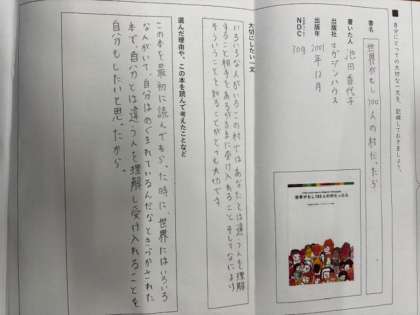 自分にとっての大切な一文を、記録しておきましょう。
書名
世界がもし100人の村だったら
書いた人
池田香代子
出版社
マガジンハウス
出版年
2001年12月
NDC
304
世界がもし100人の村だったら
大切にしたい一文
いろいろな人がいるこの村ではあなたとは違う人を理解
すること相手をあるがままに受け入れることそしてなにより
そういうことを知ることがとても大切です
選んだ理由や、この本を読んで考えたことなど
この本を最初に読んでもらった時に、世界にはいろいろ
な人がいて、自分はめぐまれているんだなときづかされた
本で、自分とは違う人を理解し受け入れることを
自分もしたいと思ったから。